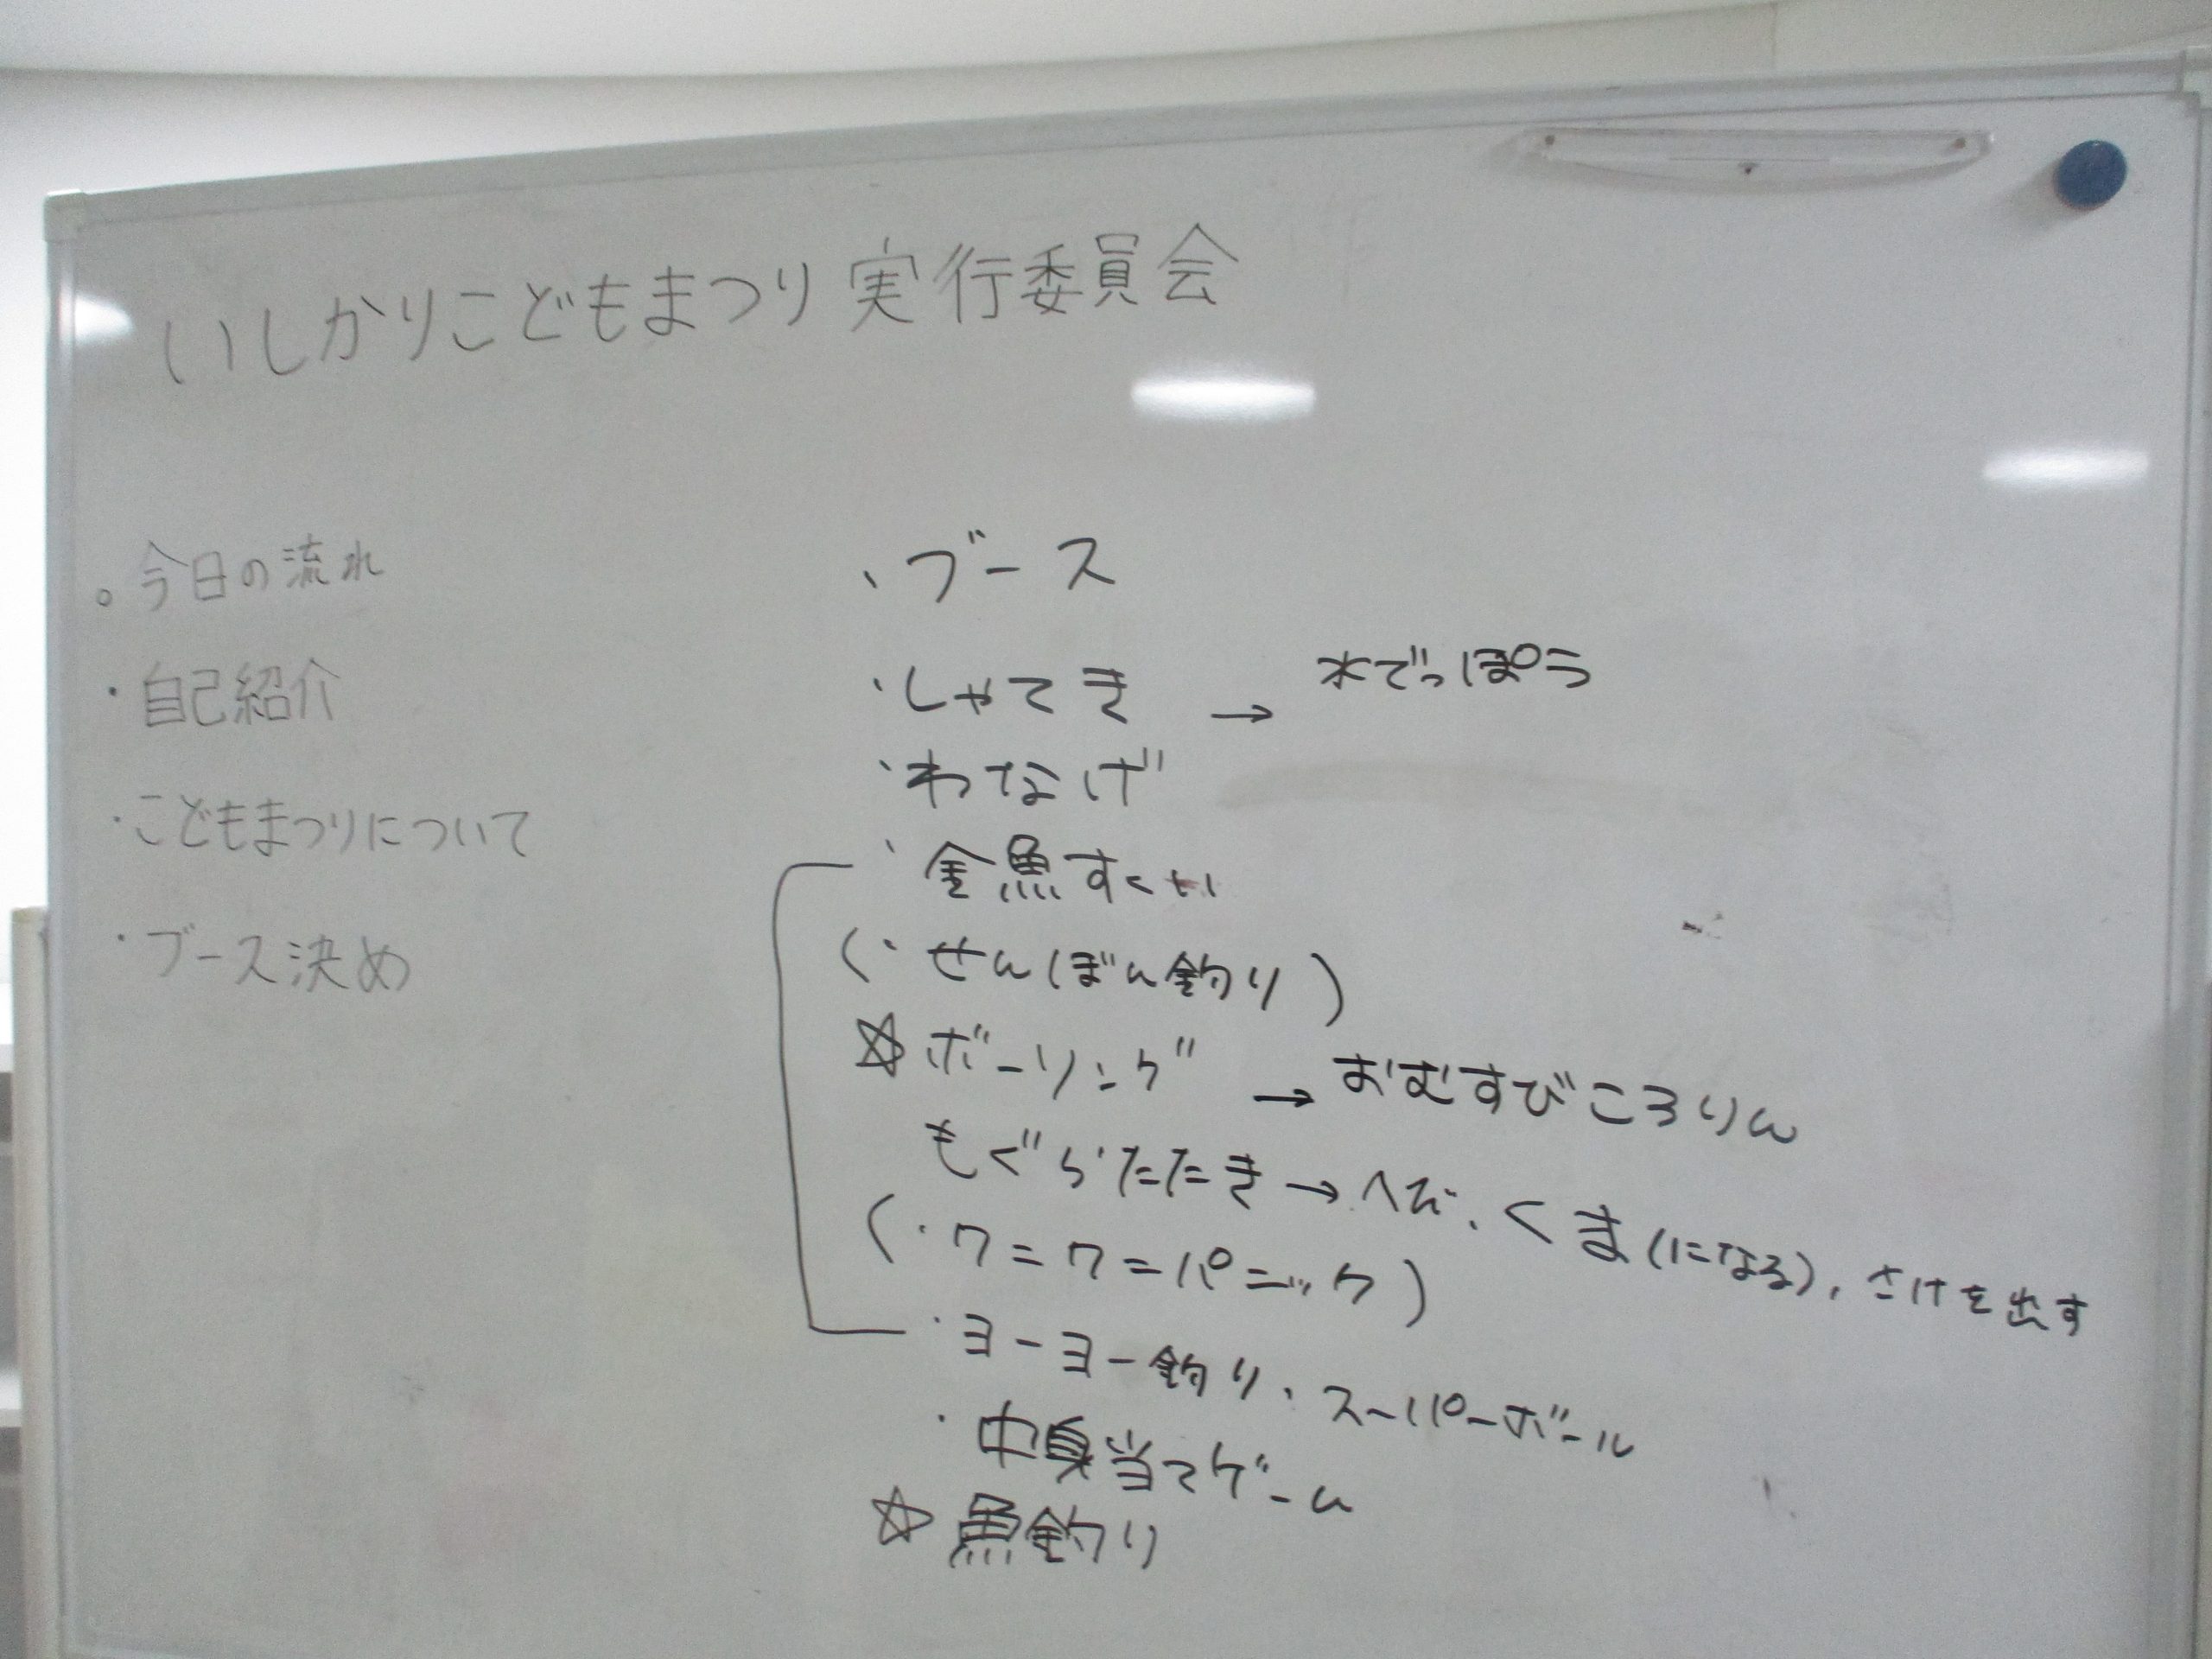 いしかりこどもまつり実行委員会
。今日の流れ
・自己紹介
・こどもまつりについて
・ブース決め
・ブース
・しゃてき → 水でっぽう
・わなげ
・金魚すくい
(・せんぼん釣り)
☆ボーリング → おむすびころりん
もぐらたたき → へび、くま(になる)、さけを出す
(・ワニワニパニック)
・ヨーヨー釣り、スーパーボール
・中身当てゲーム
☆魚釣り